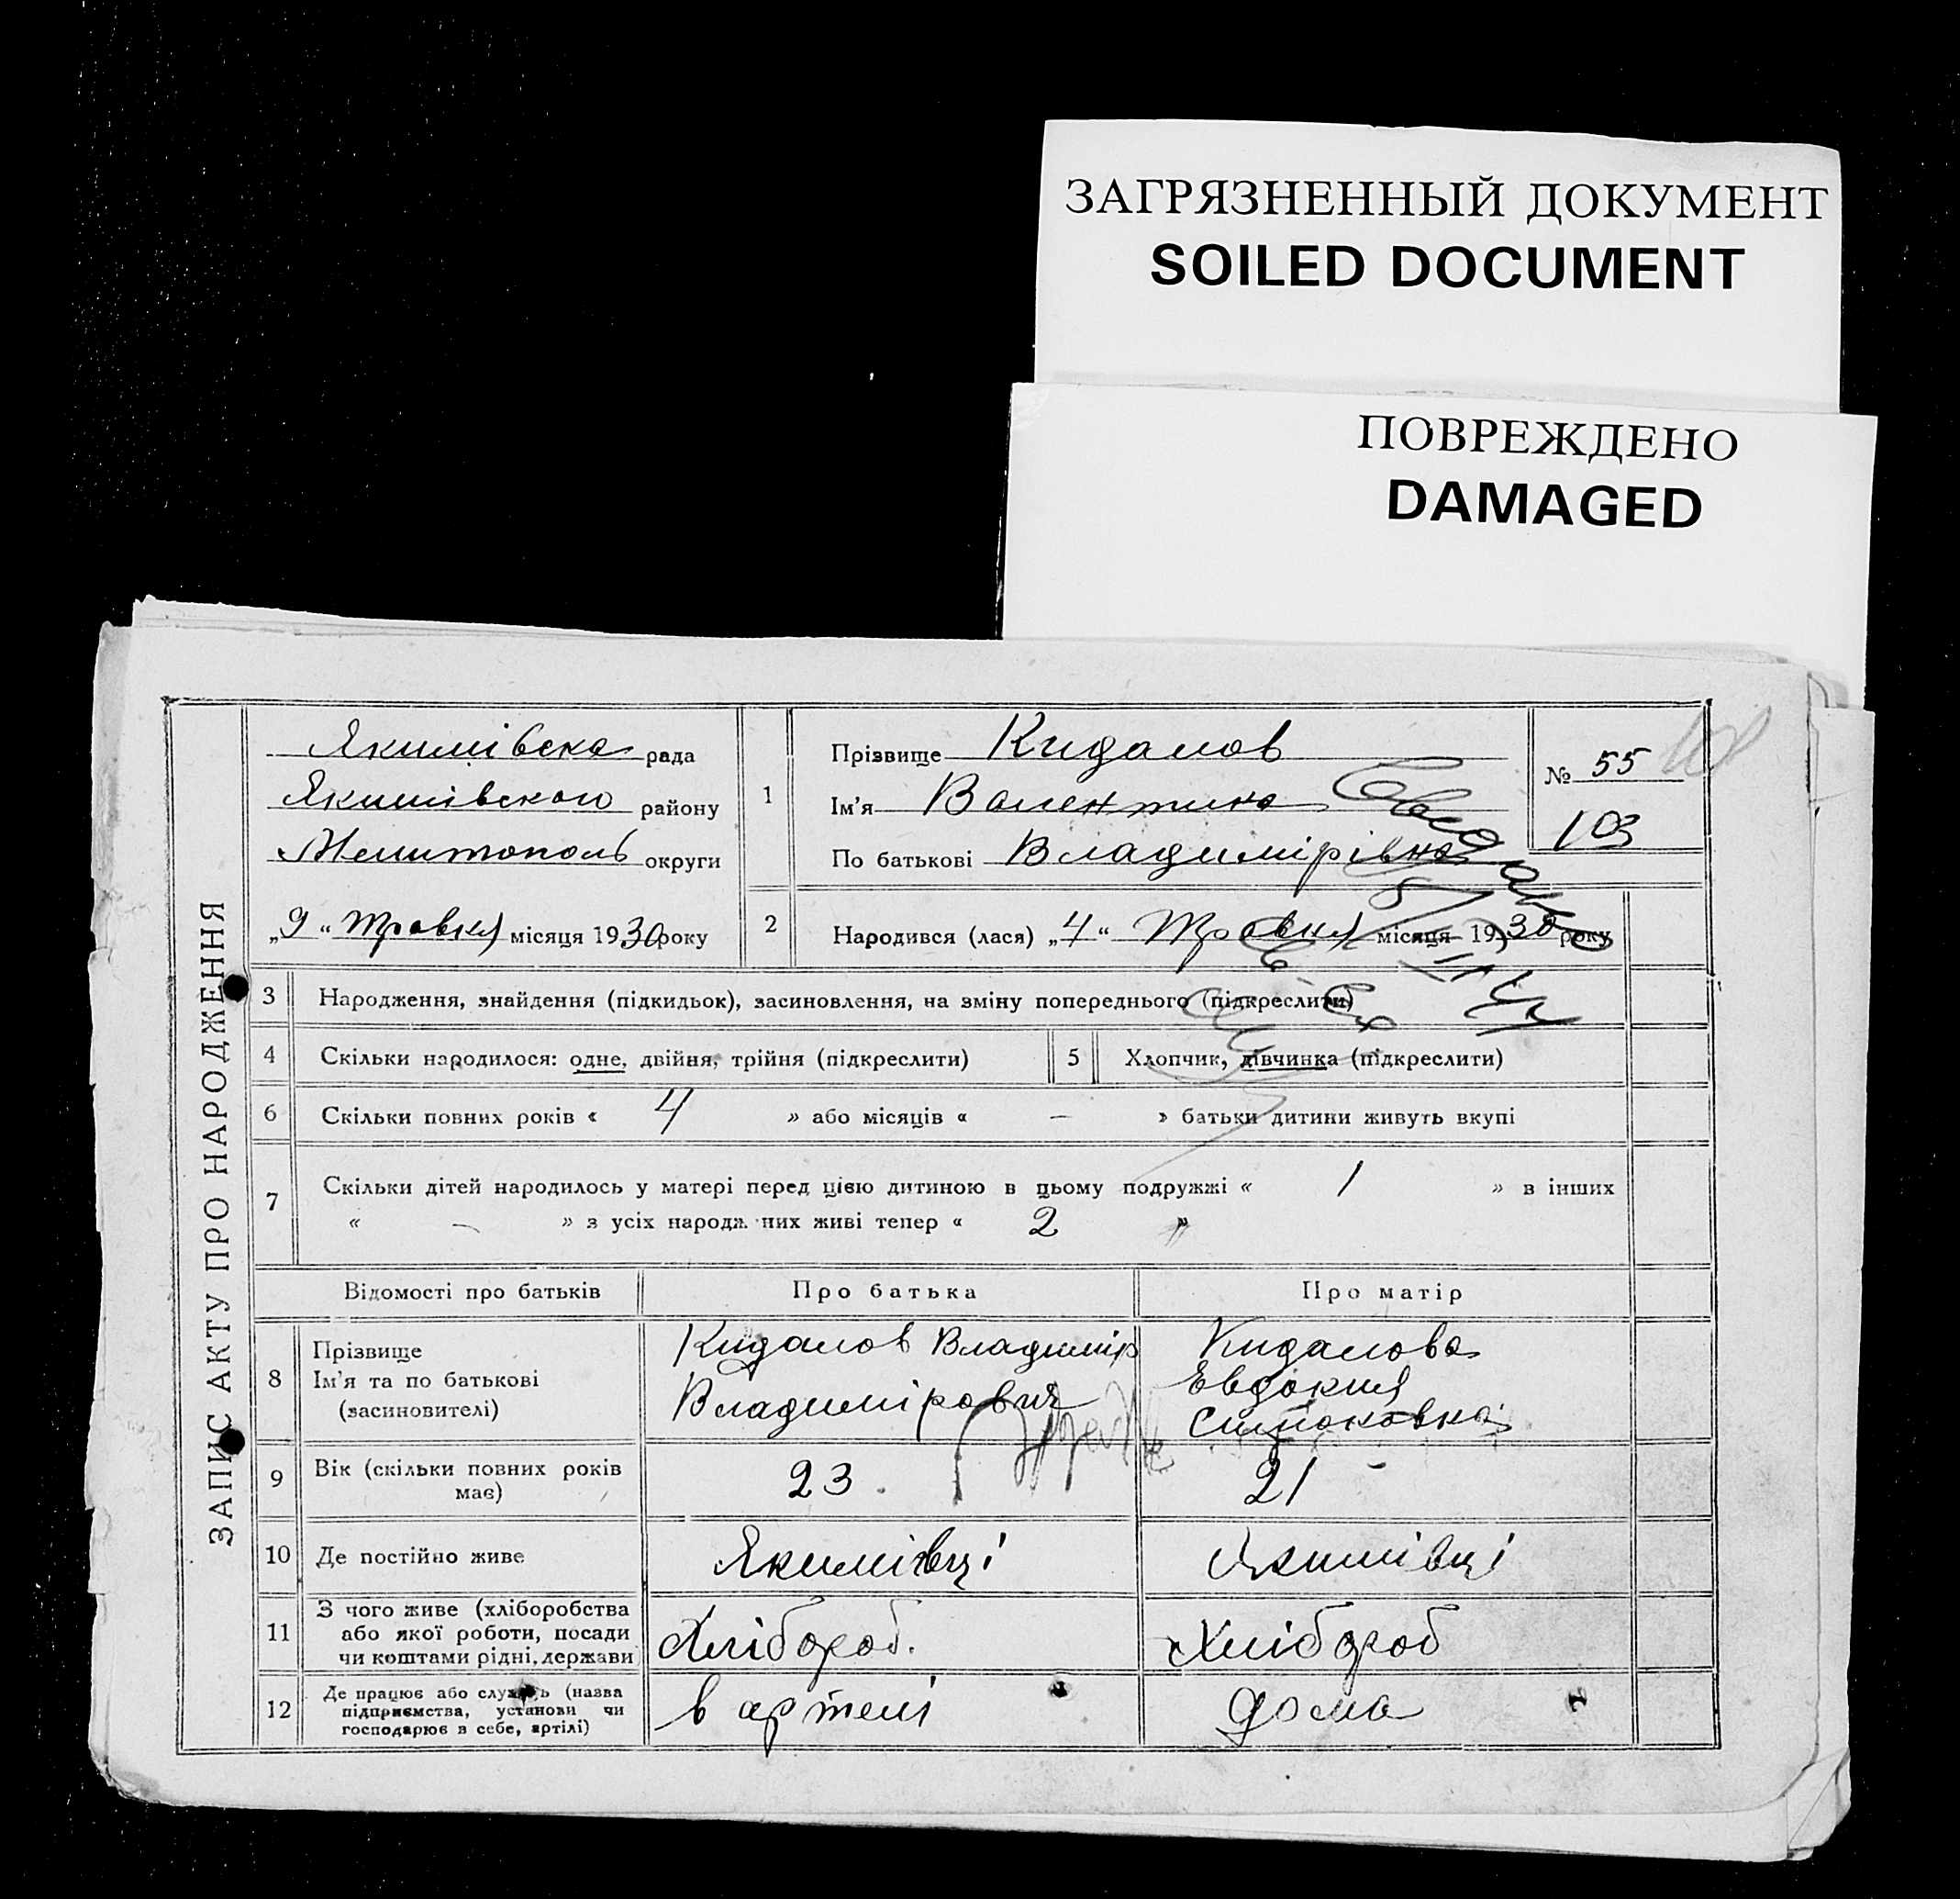 ЗАГРЯЗНЕННЫЙ ДОКУМЕНТ
SOILED DOCUMENT
ПОВРЕЖДЕНО
DAMAGED
ЗАПИС АКТУ ПРО НАРОДЖЕННЯ
Якимівська рада
Якимівского району
Мелитополь округи
„9“ Травня місяця 1930 року
1
Прізвище Кидалов
Ім'я Валентина
По батькові Владимірівна
№ 55
103
2
Народився (лася) „4“ Травня місяця 1930 року
3 Народження, знайдення (підкидьок), засиновлення, на зміну попереднього (підкреслити)
4 Скільки народилося: одне, двійня, трійня (підкреслити)
5 Хлопчик, дівчинка (підкреслити)
6 Скільки повних років « 4 » або місяців « — » батьки дитини живуть вкупі
7 Скільки дітей народилось у матері перед цією дитиною в цьому подружжі « 1 » в інших
« — » з усіх народж них живі тепер « 2 »
Відомості про батьків Про батька Про матір
8 Прізвище
Ім'я та по батькові
(засиновителі)
Кидалов Владимір
Владимірович
Кидалова
Евдокия
9 Вік (скільки повних років
має)
23
21
10 Де постійно живе Якимівці Якимівці
11 З чого живе (хліборобства
або якої роботи, посади
чи коштами рідні, держави
Хлібороб.
Хлібороб
12 Де працює або служить (назва
підприємства, установи чи
господарює в себе, артілі)
в артелі
дома